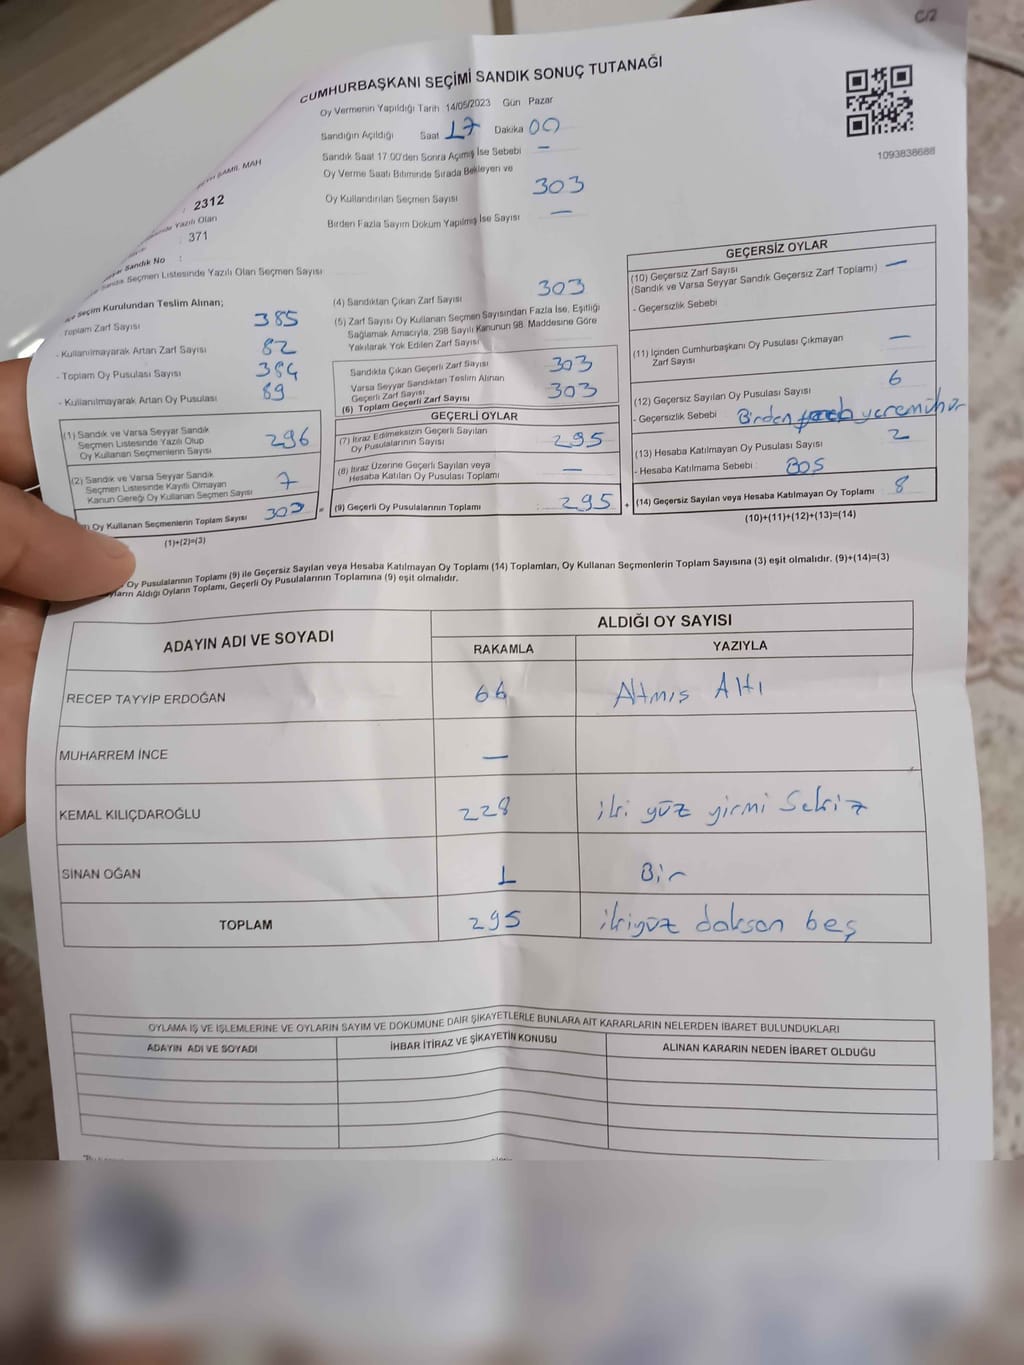 C/2
CUMHURBAŞKANI SEÇİMİ SANDIK SONUÇ TUTANAĞI
Oy Vermenin Yapıldığı Tarih 14/05/2023 Gün Pazar
Sandığın Açıldığı Saat 17 Dakika 00
Sandık Saat 17:00'den Sonra Açımış İse Sebebi —
Oy Verme Saati Bitiminde Sırada Bekleyen ve
Oy Kullandırılan Seçmen Sayısı 303
Birden Fazla Sayım Döküm Yapılmış İse Sayısı —
1093838688
ŞAMİL MAH
: 2312
Yazılı Olan
: 371
Sandık No :
Seçmen Listesinde Yazılı Olan Seçmen Sayısı
Seçim Kurulundan Teslim Alınan;
Toplam Zarf Sayısı 385
- Kullanılmayarak Artan Zarf Sayısı 82
- Toplam Oy Pusulası Sayısı 384
- Kullanılmayarak Artan Oy Pusulası 89
(1) Sandık ve Varsa Seyyar Sandık
Seçmen Listesinde Yazılı Olup
Oy Kullanan Seçmenlerin Sayısı 296
(2) Sandık ve Varsa Seyyar Sandık
Seçmen Listesinde Kayıtlı Olmayan
Kanun Gereği Oy Kullanan Seçmen Sayısı 7
Oy Kullanan Seçmenlerin Toplam Sayısı 303 =
(1)+(2)=(3)
(4) Sandıktan Çıkan Zarf Sayısı 303
(5) Zarf Sayısı Oy Kullanan Seçmen Sayısından Fazla İse, Eşitliği
Sağlamak Amacıyla, 298 Sayılı Kanunun 98. Maddesine Göre
Yakılarak Yok Edilen Zarf Sayısı
Sandıkta Çıkan Geçerli Zarf Sayısı 303
Varsa Seyyar Sandıktan Teslim Alınan
Geçerli Zarf Sayısı 303
(6) Toplam Geçerli Zarf Sayısı
GEÇERLİ OYLAR
(7) İtiraz Edilmeksizin Geçerli Sayılan
Oy Pusulalarının Sayısı 295
(8) İtiraz Üzerine Geçerli Sayılan veya
Hesaba Katılan Oy Pusulası Toplamı —
(9) Geçerli Oy Pusulalarının Toplamı 295 +
GEÇERSİZ OYLAR
(10) Geçersiz Zarf Sayısı —
(Sandık ve Varsa Seyyar Sandık Geçersiz Zarf Toplamı)
- Geçersizlik Sebebi
(11) İçinden Cumhurbaşkanı Oy Pusulası Çıkmayan
Zarf Sayısı —
(12) Geçersiz Sayılan Oy Pusulası Sayısı 6
- Geçersizlik Sebebi : Birden yere mühür
(13) Hesaba Katılmayan Oy Pusulası Sayısı 2
- Hesaba Katılmama Sebebi : BOS
(14) Geçersiz Sayılan veya Hesaba Katılmayan Oy Toplamı 8
(10)+(11)+(12)+(13)=(14)
Oy Pusulalarının Toplamı (9) ile Geçersiz Sayılan veya Hesaba Katılmayan Oy Toplamı (14) Toplamları, Oy Kullanan Seçmenlerin Toplam Sayısına (3) eşit olmalıdır. (9)+(14)=(3)
Aldığı Oyların Toplamı, Geçerli Oy Pusulalarının Toplamına (9) eşit olmalıdır.
ADAYIN ADI VE SOYADI ALDIĞI OY SAYISI
RAKAMLA YAZIYLA
RECEP TAYYİP ERDOĞAN 66 Altmıs Altı
MUHARREM İNCE —
KEMAL KILIÇDAROĞLU 228 iki yüz yirmi Sekiz
SİNAN OĞAN 1 Bir
TOPLAM 295 ikiyüz doksan beş
OYLAMA İŞ VE İŞLEMLERİNE VE OYLARIN SAYIM VE DÖKÜMÜNE DAİR ŞİKAYETLERLE BUNLARA AİT KARARLARIN NELERDEN İBARET BULUNDUKLARI
ADAYIN ADI VE SOYADI İHBAR İTİRAZ VE ŞİKAYETİN KONUSU ALINAN KARARIN NEDEN İBARET OLDUĞU